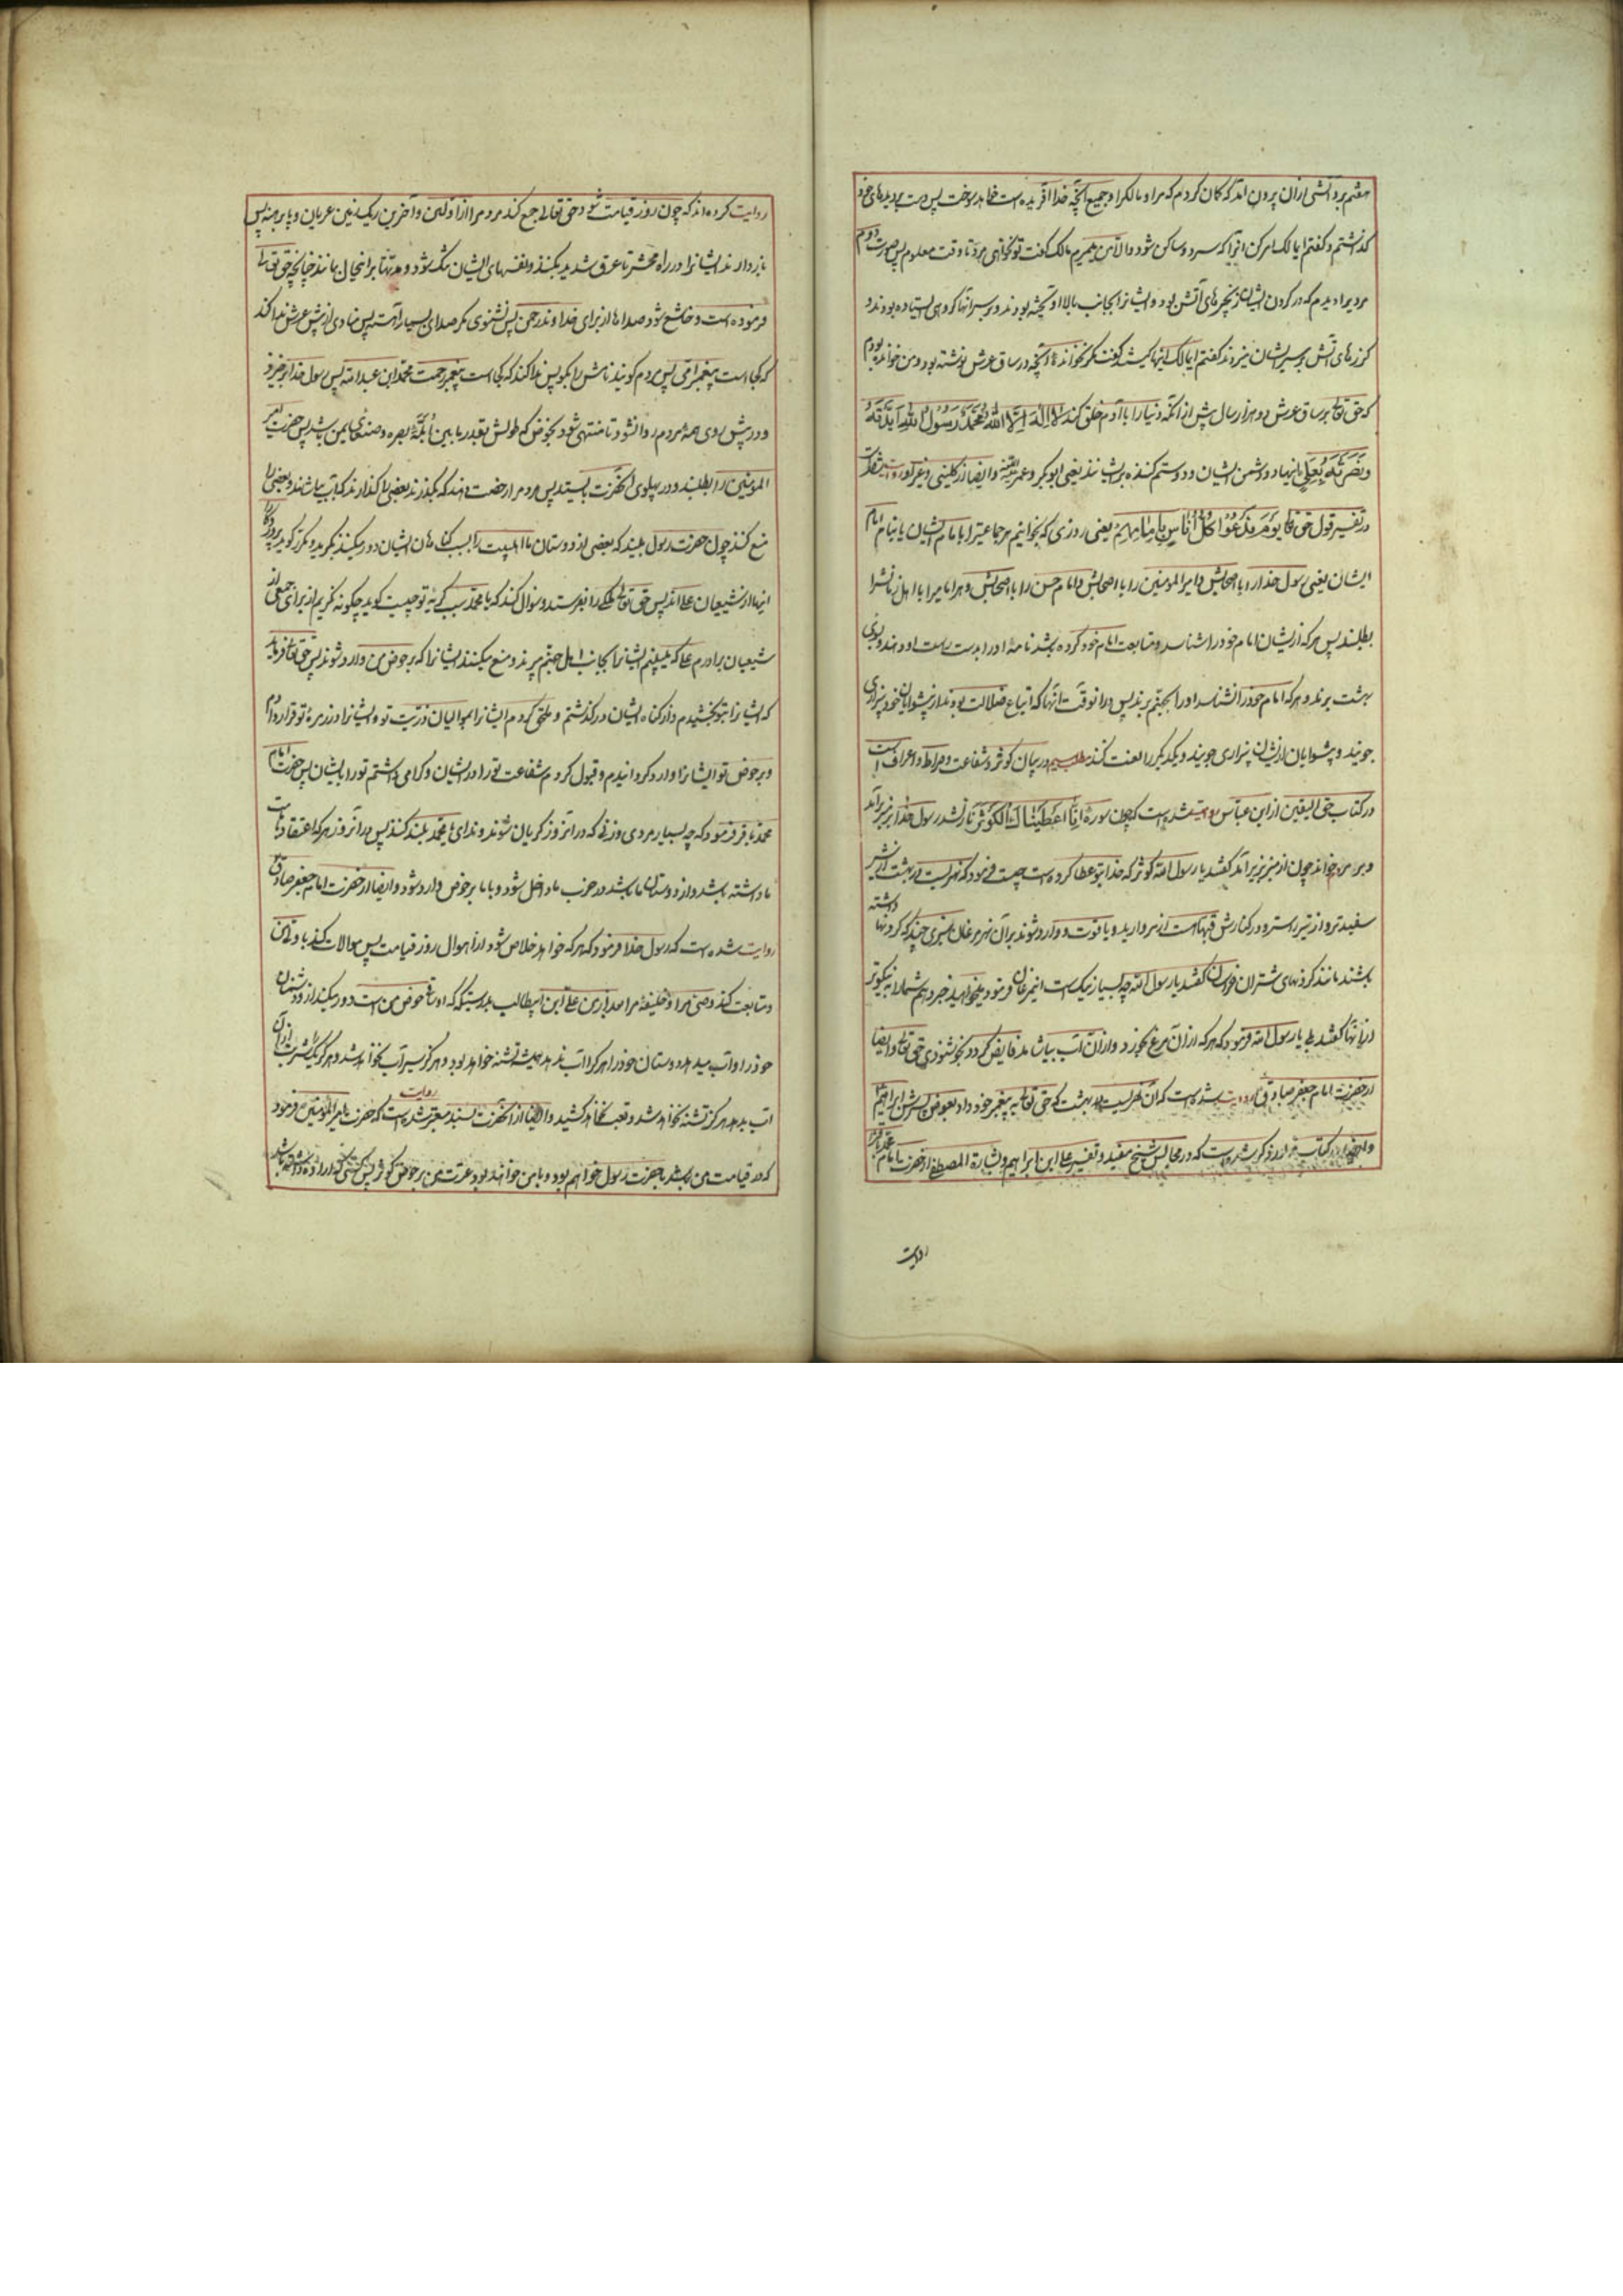 هفتم برد آتشی ازان بیرون آمد که کمان کردم که مرا و مالکرا و جمیع آنچه خدا آفریده است خواهد سوخت پس دست بر دیدهای خود
گذاشتم و گفتم ایمالک امر کن اینرا که سرد و ساکن شود والا من میمیرم مالک گفت تو نخواهی مرد تا وقت معلوم پس صورت دو
مردیرا دیدم که در گردن ایشان زنجیرهای آتش بود و ایشانرا بجانب بالا اویخته بودند و بر سر آنها گروهی ایستاده بودند و
گرزهای آتش بر سر ایشان میزدند گفتم ایمالک اینها کیستند گفت مگر نخوانده آنچه در ساق عرش نوشته بود و من خوانده بودم
که حق تعالی بر ساق عرش دو هزار سال پیش از انکه دنیا را با آدم خلق کند لا اله الا الله محمد رسول الله ایدته
و نصرته بعلی اینها دو دشمن ایشان و دو ستم کننده بر ایشانند یعنی ابوبکر و عمر و ایضا از کلینی و غیر او روایت شده است
در تفسیر قول حق تعالی یوم ندعوا کل اناس بامامهم یعنی روزی که بخوانیم هر جماعتیرا با امام ایشان یا بنام امام
ایشان یعنی رسول خدا را با اصحابش و امیرالمومنین را با اصحابش و امام حسن را با اصحابش و هر امامیرا با اهل زمانش را
بطلبند پس هر که از ایشان امام خود را شناسد و متابعت امام خود کرده باشد نامهٔ او را بدست راست او دهند و بسوی
بهشت برند و هر که امام خود را نشناسد او را بجهنم برند پس در انوقت آنها که اتباع ضلالت بودند از پیشوایان خود بیزاری
جویند و پیشوایان از ایشان بیزاری جویند و یکدیگر را لعنت کنند مطلب سیم در بیان کوثر و شفاعت و صراط و اعراف است
در کتاب حق الیقین از ابن عباس روایت شده است که چون سورهٔ انا اعطیناک الکوثر نازل شد رسول خدا بر منبر برآمد
و بر مردم خواند چون از منبر بزیر آمد گفتند یا رسول الله کوثر که خدا بتو عطا کرده است چیست فرمود که نهریست در بهشت از شیر
سفیدتر و از تیر راست‌تر و در کنارش قبهاست از مروارید و یاقوت و وارد شوند بران نهر مرغان سبزی چند که گردنها داشته
باشند مانند گردنهای شتران خراسان گفتند یا رسول الله چه بسیار نیک است این مرغان فرمود میخواهید خبر دهم شما را به نیکوتر
از اینها گفتند بلی یا رسول الله فرمود که هر که ازان مرغ بخورد و ازان آب بیاشامد فایض گردد بخوشنودی حق تعالی و ایضا
از حضرت امام جعفر صادق روایت شده است که آن نهریست در بهشت که حق تعالی به پیغمبر خود داد بعوض پسرش ابراهیم
و ایضا در کتاب مزبور مذکور شده است که در مجالس شیخ مفید و تفسیر علی ابن ابراهیم و بشارة المصطفی از حضرت امام محمد باقر
روایت
روایت کرده‌اند که چون روز قیامت شود حق تعالی جمع کند مردم را از اولین و آخرین در یک زمین عریان و پا برهنه پس
باز دارند ایشانرا در راه محشر تا عرق شدید بکنند و نفسهای ایشان تنگ شود و مدتها بر اینحال بمانند چنانچه حق تعالی
فرموده است و خاشع شود صداها از برای خداوند رحمن پس نشنوی مگر صدای بسیار آهسته پس منادی از پیش عرش ندا کند
که کجا است پیغمبر امی پس مردم گویند نامش را بگو پس ندا کند که کجا است پیغمبر رحمت محمد ابن عبدالله پس رسول خدا برخیزد
و در پیش روی همهٔ مردم روانشود تا منتهی شود بحوضی که طولش بقدر مابین ابلهٔ بصره و صنعای یمن باشد پس حضرت امیر
المومنین را بطلبند و در پهلوی آنحضرت بایستد پس مردم را رخصت دهند که بگذرند بعضی را گذارند که آب بیاشامند و بعضی را
منع کنند چون حضرت رسول ببیند که بعضی از دوستان ما اهلبیت را بسبب گناهان ایشان دور میکنند بگرید و مکرر گوید پروردگارا
اینها از شیعیان علی اند پس حق تعالی ملکی را بفرستد و سوال کند که یا محمد سبب گریهٔ تو چیست گوید چگونه نگریم از برای جمعی از
شیعیان برادرم علی که میبینم ایشانرا بجانب اهل جهنم میبرند و منع میکنند ایشانرا که بر حوض من وارد شوند پس حق تعالی فرماید
که ایشانرا بتو بخشیدم و از گناه ایشان درگذشتم و ملحق کردم ایشانرا بموالیان ذریت تو و ایشانرا در زمرهٔ تو قرار دادم
و بر حوض تو ایشانرا وارد گردانیدم و قبول کردم شفاعت تو را در ایشان و گرامی داشتم تو را بایشان پس حضرت امام
محمد باقر فرمود که چه بسیار مردی و زنی که در آنروز گریان شوند و ندای یا محمد بلند کنند پس در آنروز هر که اعتقاد بامامت
ما داشته باشد و از دوستان ما باشد در حزب ما داخل شود و با ما بر حوض وارد شود و ایضا از حضرت امام جعفر صادق
روایت شده است که رسول خدا فرمود که هر که خواهد خلاص شود از اهوال روز قیامت پس موالات کند با ولی من
و متابعت کند وصی مرا و خلیفهٔ مرا بعد از من علی ابن ابیطالب بدرستیکه که او ساقی حوض من است دور میکند ازو دشمنان
خود را و آب میدهد دوستان خود را هر که را آب ندهد همیشه تشنه خواهد بود و هرگز سیرآب نخواهد شد و هر که یک شربت ازان
آب بدهد هرگز تشنه نخواهد شد و تعب نخواهد کشید و ایضا از آنحضرت بسند معتبر روایت شده است که حضرت امیرالمومنین فرمود
که در قیامت من با حضرت رسول خواهم بود و با من خواهند بود عترت من بر حوض کوثر پس کسی که ارادهٔ داشته باشد